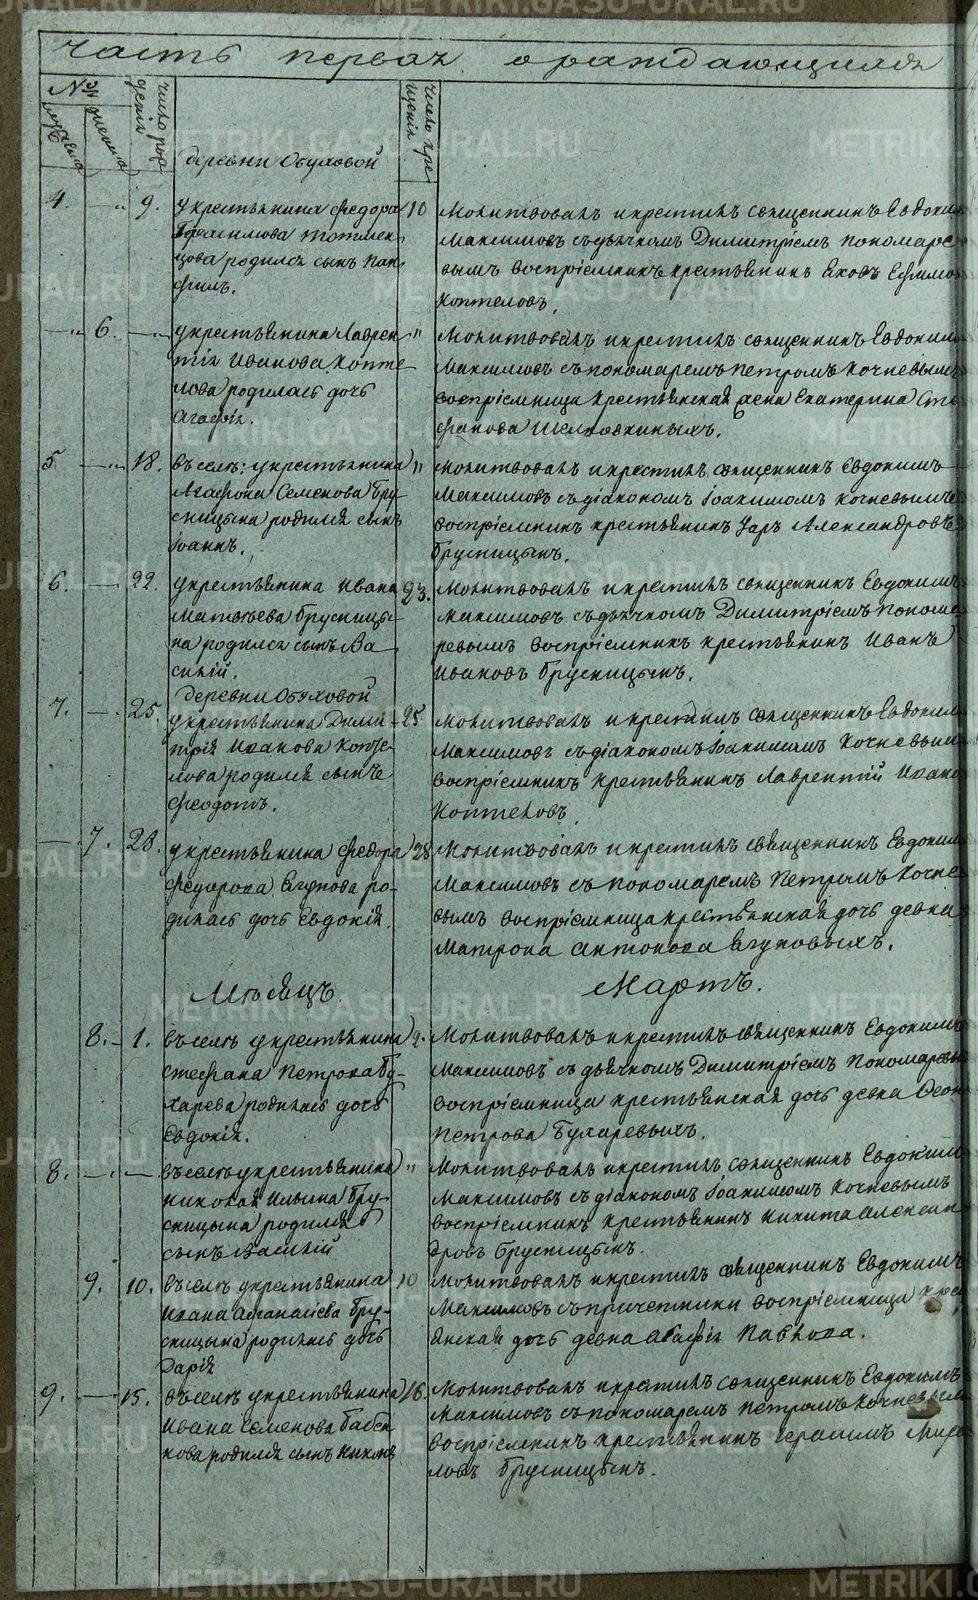 часть первая о раждающихся
№
мужеска
женска
число рож
денія
число кре
щенія
деревни Обуховой
4. " 9. 10
у крестьянина Федора
Герасимова
цова родился сынъ Пан
филъ.
Молитвовалъ и крестилъ священникъ Евдоким
Максимовъ съ дьячкомъ Димитріемъ Пономаре
вымъ воспріемникъ крестьянинъ Яковъ Ефимов
Коптеловъ.
" 6. — "
у крестьянина Лаврен
тія Иванова Копте
лова родилась дочь
Агафія.
Молитвовалъ и крестилъ священникъ Евдоким
Максимовъ съ пономаремъ Петромъ Кочневымъ
воспріемница крестьянская жена Екатерина Сте
фанова Шелковкиныхъ.
5 — 18. "
въ селѣ: у крестьянина
Агафона Семенова Бру
сницына родился сынъ
Іоаннъ.
Молитвовалъ и крестилъ священникъ Евдокимъ
Максимовъ съ діакономъ Іоакимомъ Кочневымъ
воспріемникъ крестьянинъ Александровъ
Брусницынъ.
6. — 22. 23.
у крестьянина Ивана
Матвѣева Брусницы
на родился сынъ Ва
силій.
Молитвовалъ и крестилъ священникъ Евдокимъ
Максимовъ съ дьячкомъ Димитріемъ Понома
ревымъ воспріемникъ крестьянинъ Иванъ
Ивановъ Брусницынъ.
деревни Обуховой
7. — 25. 25
у крестьянина Дими
трія Иванова Копте
лова родился сынъ
Феодотъ.
Молитвовалъ и крестилъ священникъ Евдоким
Максимовъ съ діакономъ Іоакимомъ Кочневым
воспріемникъ крестьянинъ Лаврентій Ивано
Коптеловъ.
— 7. 28. 28
у крестьянина Федора
Федорова Ягупова ро
дилась дочь Евдокія.
Молитвовалъ и крестилъ священникъ Евдоким
Максимовъ съ пономаремъ Петромъ Кочне
вымъ воспріемница крестьянская дочь девка
Матрона Антонова Ягуповыхъ.
Мѣсяцъ Мартъ.
8. — 1. 2.
въ селѣ у крестьянина
Стефана Петрова Бу
харева родилась дочь
Евдокія.
Молитвовалъ и крестилъ священникъ Евдокимъ
Максимовъ съ дьячкомъ Димитріемъ Пономаревы
воспріемница крестьянская дочь девка Феок
Петрова Бухаревыхъ.
8. — — "
въ селѣ у крестьянина
Николая Ильина Бру
сницына родился
сынъ Василій
Молитвовалъ и крестилъ священникъ Евдоким
Максимовъ съ діакономъ Іоакимомъ Кочневымъ
воспріемникъ крестьянинъ Никита Алексан
дровъ Брусницынъ.
9. 10. 10
въ селѣ у крестьянина
Ивана Афанасіева Бру
сницына родилась дочь
Дарія
Молитвовалъ и крестилъ священникъ Евдокимъ
Максимовъ съ причетники воспріемница крес
янская дочь девка Агафія Павлова.
9. — 15. 16.
въ селѣ у крестьянина
Ивана Семенова Бабен
кова родился сынъ Никонъ
Молитвовалъ и крестилъ священникъ Евдокимъ
Максимовъ съ пономаремъ Петромъ Кочневым
воспріемникъ крестьянинъ Герасимъ
ловъ Брусницынъ.
METRIKI.GASO-URAL.RU